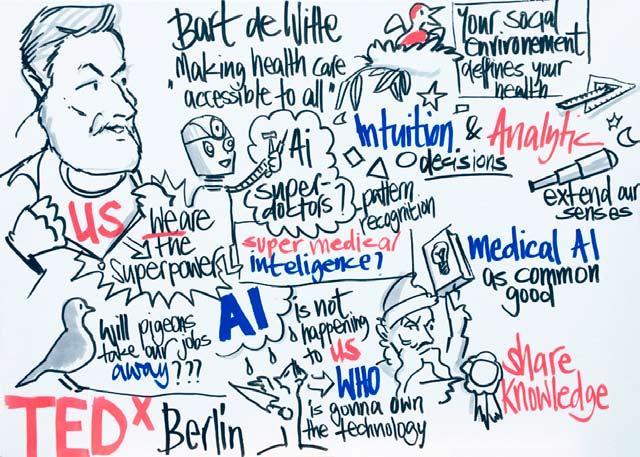 Bart de Witte
Making health care
"accessible to all"
Your social
environement
defines your
health
Intuition & Analytic
decisions
extend our
senses
Ai
super-
doctors?
pattern
recognition
US
We are
the
Superpower
super medical
inteligence?
Medical AI
as common
good
Will pigeons
take our jobs
away???
AI
is not
happening
to us
WHO
is gonna own
the technology
share
knowledge
TEDx Berlin